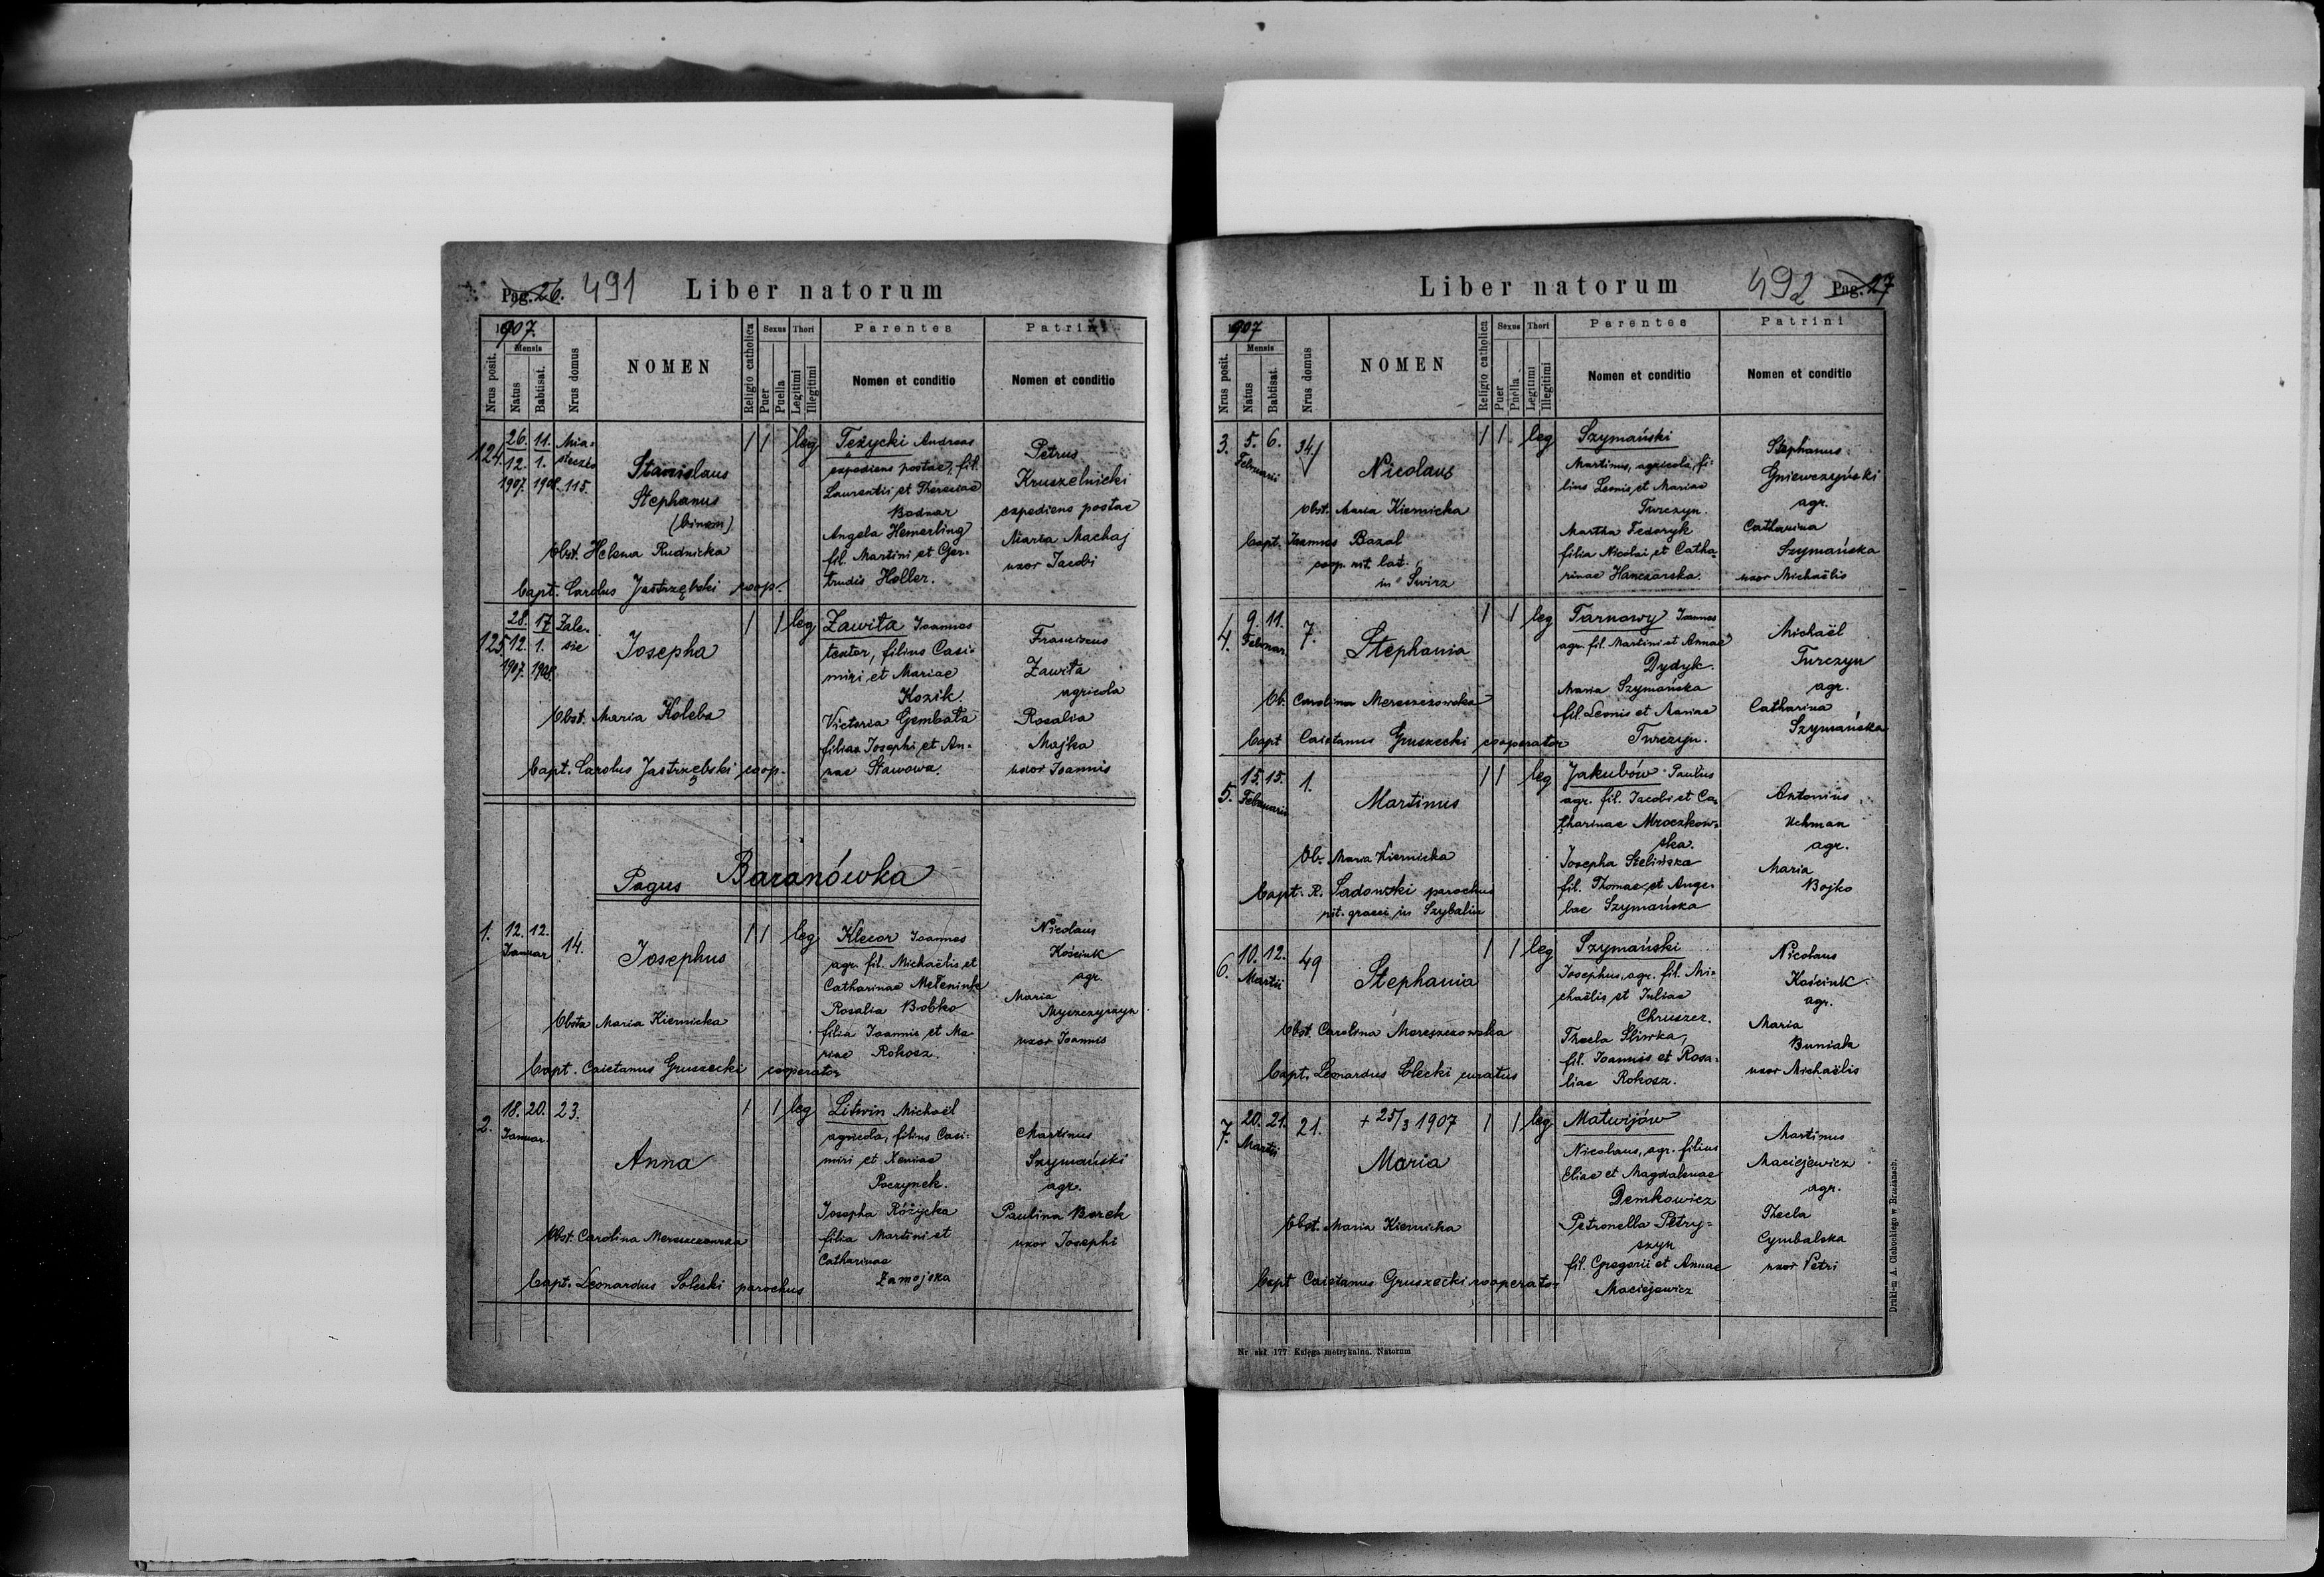 Pag. 26. 491 Liber natorum
1907.
Nrus posit.
Mensis
Natus
Babtisat.
Nrus domus
NOMEN
Religio catholica
Sexus
Puer
Puella
Thori
Legitimi
Illegitimi
Parentes
Nomen et conditio
Patrini
Nomen et conditio
124. 26. 11. Mia-
12. 1. steczko
1907. 1908. 115.
Stanislaus
Stephanus
(binom)
Obst. Helena Rudnicka
Bapt. Carolus Jastrzębski coop.
1 1 leg
Teżycki Andreas
expediens postae, fil.
Laurentii et Theresiae
Bodnar
Angela Hemerling
fil. Martini et Ger-
trudis Holler.
Petrus
Kruszelnicki
expediens postae
Maria Machaj
uxor Jacobi
125 28. 17 Zale-
12. 1. sie
1907. 1908.
Josepha
Obst. Maria Koleba
Bapt. Carolus Jastrzębski coop.
1 1 leg
Zawita Joannes
textor, filius Casi-
miri et Mariae
Kozik.
Victoria Gembata
filiae Josephi et An-
nae Stawowa.
Franciscus
Zawita
agricola
Rosalia
Majka
uxor Joannis
Pagus Baranówka
1. 12. 12.
Januar 14.
Josephus
Obsta Maria Kiernicka
Bapt. Caietanus Gruszecki cooperator
1 1 leg
Klecor Joannes
agr. fil. Michaëlis et
Catharinae Meleniuk
Rosalia Bobko
filia Joannis et Ma
riae Rokosz.
Nicolaus
Kościuk
agr.
Maria
Myszczyszyn
uxor Joannis
2. 18. 20. 23.
Januar.
Anna
Obst. Carolina Mereszczowska
Bapt. Leonardus Solecki parochus
1 1 leg
Litwin Michaël
agricola, filius Casi-
miri et Xeniae
Poczynek.
Josepha Różycka
filia Martini et
Catharinae
Zamojska
Martinus
Szymański
agr.
Paulina Borek
uxor Josephi
Liber natorum 492 Pag. 27
1907
Nrus posit.
Mensis
Natus
Babtisat.
Nrus domus
NOMEN
Religio catholica
Sexus
Puer
Puella
Thori
Legitimi
Illegitimi
Parentes
Nomen et conditio
Patrini
Nomen et conditio
3. 5. 6. 34/
Februarii
Nicolaus
Obst. Maria Kiernicka
Bapt. Joannes Bazal
coop. rit. lat.
in Świrz
1 1 leg
Szymański
Martinus, agricola, fi-
lius Leonis et Mariae
Turczyn.
Martha Fedoryk
filia Nicolai et Catha-
rinae Hanczarska.
Stephanus
Gniewczyński
agr.
Catharina
Szymańska
uxor Michaëlis
4. 9. 11. 7.
Februar.
Stephania
Ob. Carolina Mereszczowska
Bapt Caietanus Gruszecki cooperator
1 1 leg
Tarnowy Joannes
agr. fil. Martini et Annae
Dydyk.
Maria Szymańska
fil. Leonis et Mariae
Turczyn.
Michaël
Turczyn
agr.
Catharina
Szymańska
5. 15. 15. 1.
Februarii
Martinus
Ob. Maria Kiernicka
Bapt. R. Sadowski parochus
rit. graeci in Szybalin
1 1 leg
Jakubów Paulus
agr. fil. Jacobi et Ca-
tharinae Mroczkow-
ska.
Josepha Szelińska
fil. Thomae et Ange-
lae Szymańska
Antonius
Uchman
agr.
Maria
Bojko
6. 10. 12. 49
Martii
Stephania
Obst. Carolina Mereszczowska
Bapt. Leonardus Solecki curatus
1 1 leg
Szymański
Josephus, agr. fil. Mi-
chaëlis et Juliae
Chruszcz.
Thecla Śliwka,
fil. Joannis et Rosa-
liae Rokosz.
Nicolaus
Kościuk
agr.
Maria
Buniak
uxor Michaëlis
7. 20. 21. 21.
Martii
+ 25/3 1907
Maria
Obst. Maria Kiernicka
Bapt Caietanus Gruszecki cooperator
1 1 leg
Matwijów
Nicolaus, agr. filius
Eliae et Magdalenae
Demkowicz
Petronella Petry-
szyn
fil. Gregorii et Annae
Maciejewicz
Martinus
Maciejewicz
agr.
Thecla
Cymbalska
uxor Petri
Nr skł. 177 Księga metrykalna. Natorum
Drukiem A. Głabockiego w Brzeżanach.